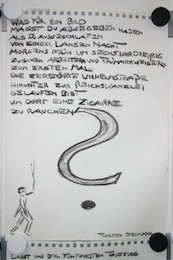 WAS FÜR EIN BILD
MAGST DU ABGEGEBEN HABEN
ALS DU AUSGESCHLAFEN
VON EINER LANGEN NACHT
MORGENS FRÜH UM SECHS UHR DREISSIG
ZWISCHEN ARBEITERN UND TRÜMMERWEIBERN
ZUM ERSTEN MAL
DIE ZERSTÖRTE WILHELMSTRASSE
HINUNTER ZUR REICHSKANZLEI
GELAUFEN BIST
UM DORT EINE ZIGARRE
ZU RAUCHEN
?
LASST UNS DEN